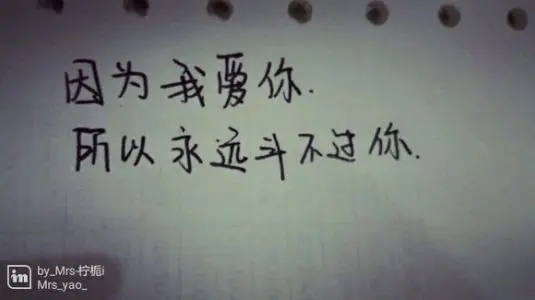 因为我爱你.
所以永远斗不过你.
by_Mrs-柠栀i
Mrs_yao_